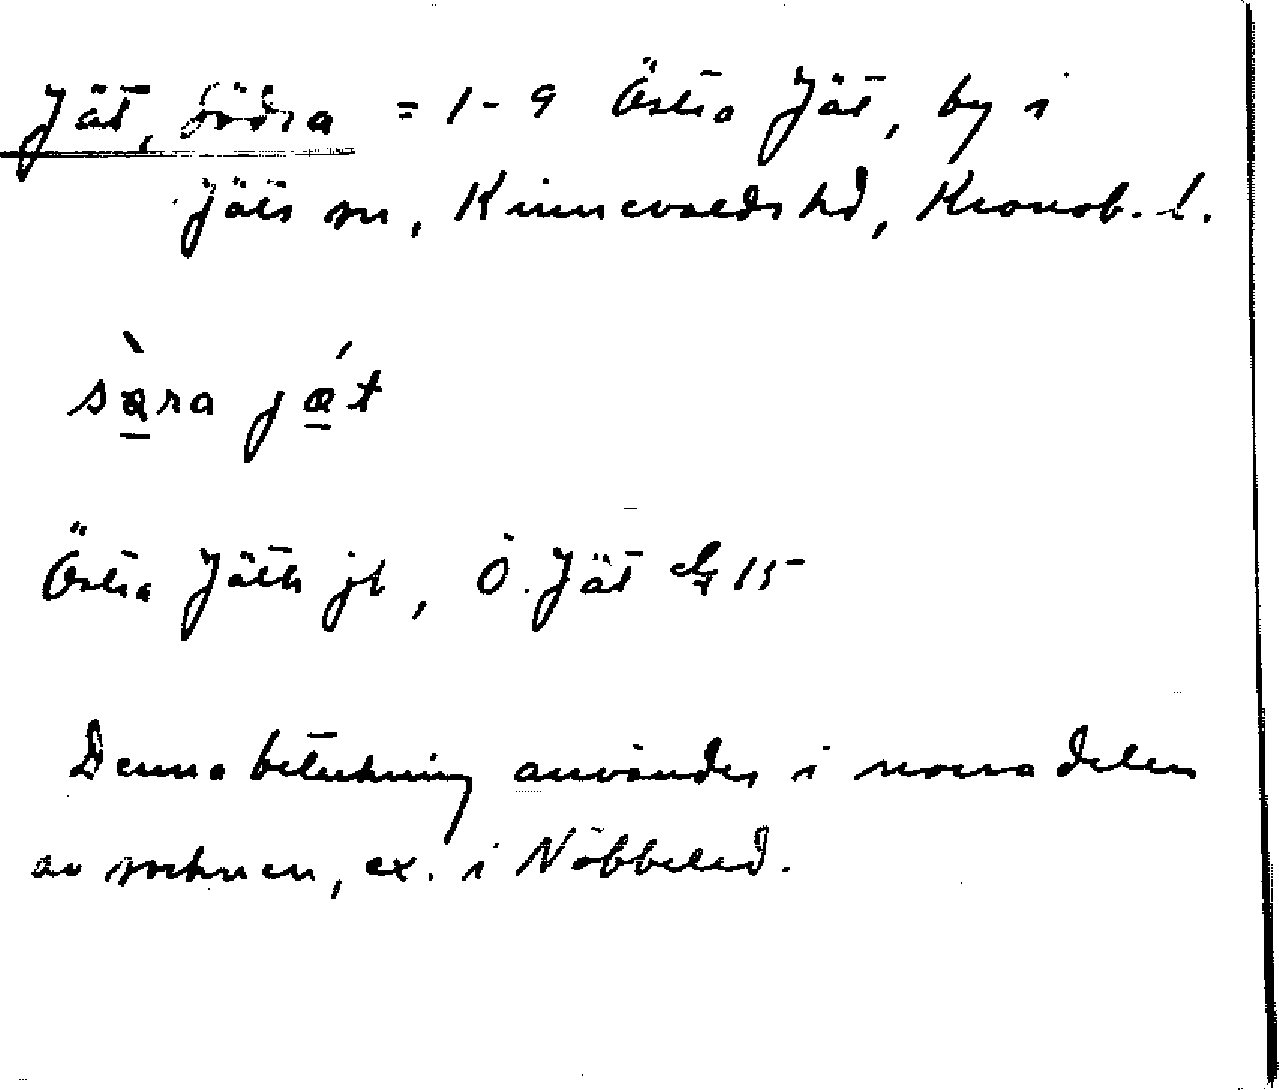 Jät, Södra = 1-9 Östra Jät, by i
Jäts sn, Kinnevalds hd, Kronob. l.
særa jæt
Östra Jäth jb, Ö. Jät 15
Denna beteckning användes i norra delen
av socknen, ex. i Nöbbeled.